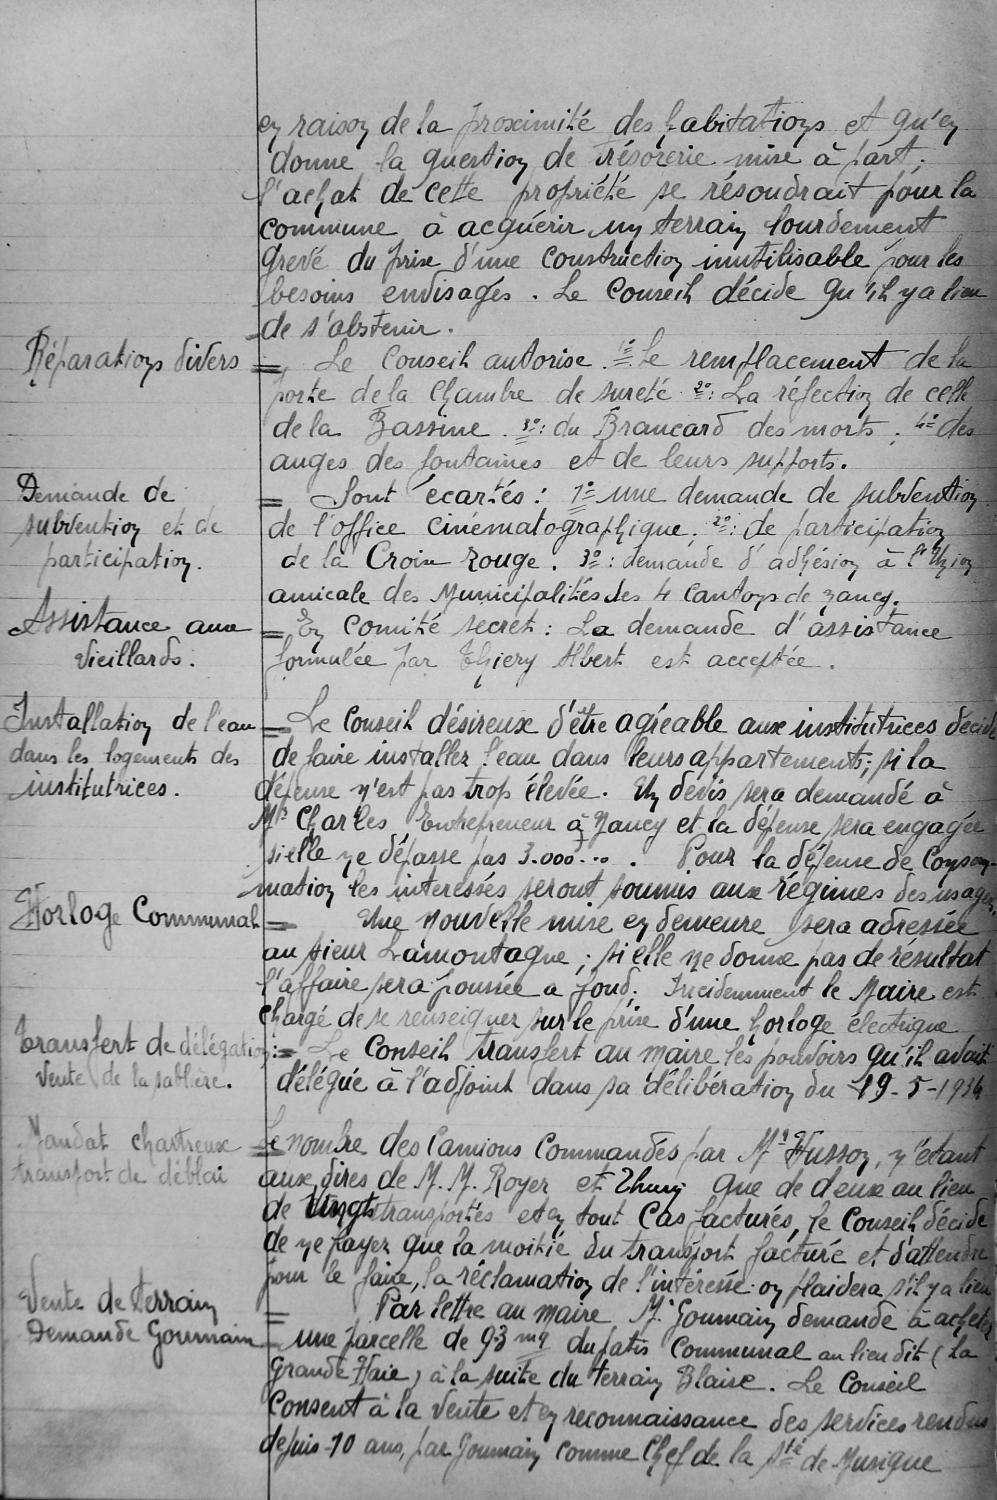 en raison de la proximité des habitations et qu'en
donne la question de trésorerie mise à part.
l'achat de cette propriété se résoudrait pour la
commune à acquérir un terrain lourdement
grevé du prix d'une construction inutilisable pour les
besoins envisagés. Le Conseil décide qu'il y a lieu
de s'abstenir.
Réparations divers = Le Conseil autorise. 1º Le remplacement de la
porte de la Chambre de sureté 2º: La réfection de celle
de la Bassine. 3º: du Brancard des morts; 4º des
auges des fontaines et de leurs supports.
Demande de
subvention et de
participation.
= Sont écartés: 1º une demande de subvention
de l'office cinématographique. 2º: de participation
de la Croix Rouge. 3º: demande d'adhésion à l'Union
amicale des Municipalités des 4 Cantons de Nancy.
Assistance aux
Vieillards.
= En Comité secret: La demande d'assistance
formulée par Thiery Albert est acceptée.
Installation de l'eau
dans les logements des
institutrices.
= Le Conseil désireux d'être agréable aux institutrices décide
de faire installer l'eau dans leurs appartements; si la
dépense n'est pas trop élevée. Un devis sera demandé à
Mr Charles Entrepreneur à Nancy et la dépense sera engagée
si elle ne dépasse pas 3.000f... . Pour la dépense de Consom-
mation les interessés seront soumis aux régimes des usagers.
Horloge Communal = Une nouvelle mise en demeure sera adressée
au sieur Lamontagne; si elle ne donne pas de résultat
l'affaire sera poussée a fond. Incidemment le Maire est
chargé de se renseigner sur le prix d'une horloge électrique
Transfert de délégation:
Vente de la sablière.
= Le Conseil transfert au maire les pouvoirs qu'il avait
délégué à l'adjoint dans sa délibération du 19-5-1934
Mandat chartreux
transport de déblai
Le nombre des Camions Commandés par Mr Husson, n'étant
aux dires de M.M. Royer et Thury que de deux au lieu
de vingt transportés et en tout Cas facturés, le Conseil décide
de ne payer que la moitié du transport facturé et d'attendre
pour le faire, la réclamation de l'intéressé. on plaidera s'il y a lieu
Vente de terrain
Demande Goumain
= Par lettre au maire Mr Goumain demande à acheter
une parcelle de 93 mq du patis Communal au lieu dit (La
Grande Haie) à la suite du terrain Blaise. Le Conseil
Consent à la vente et en reconnaissance des services rendus
depuis 10 ans, par Goumain comme Chef de la Sté de Musique